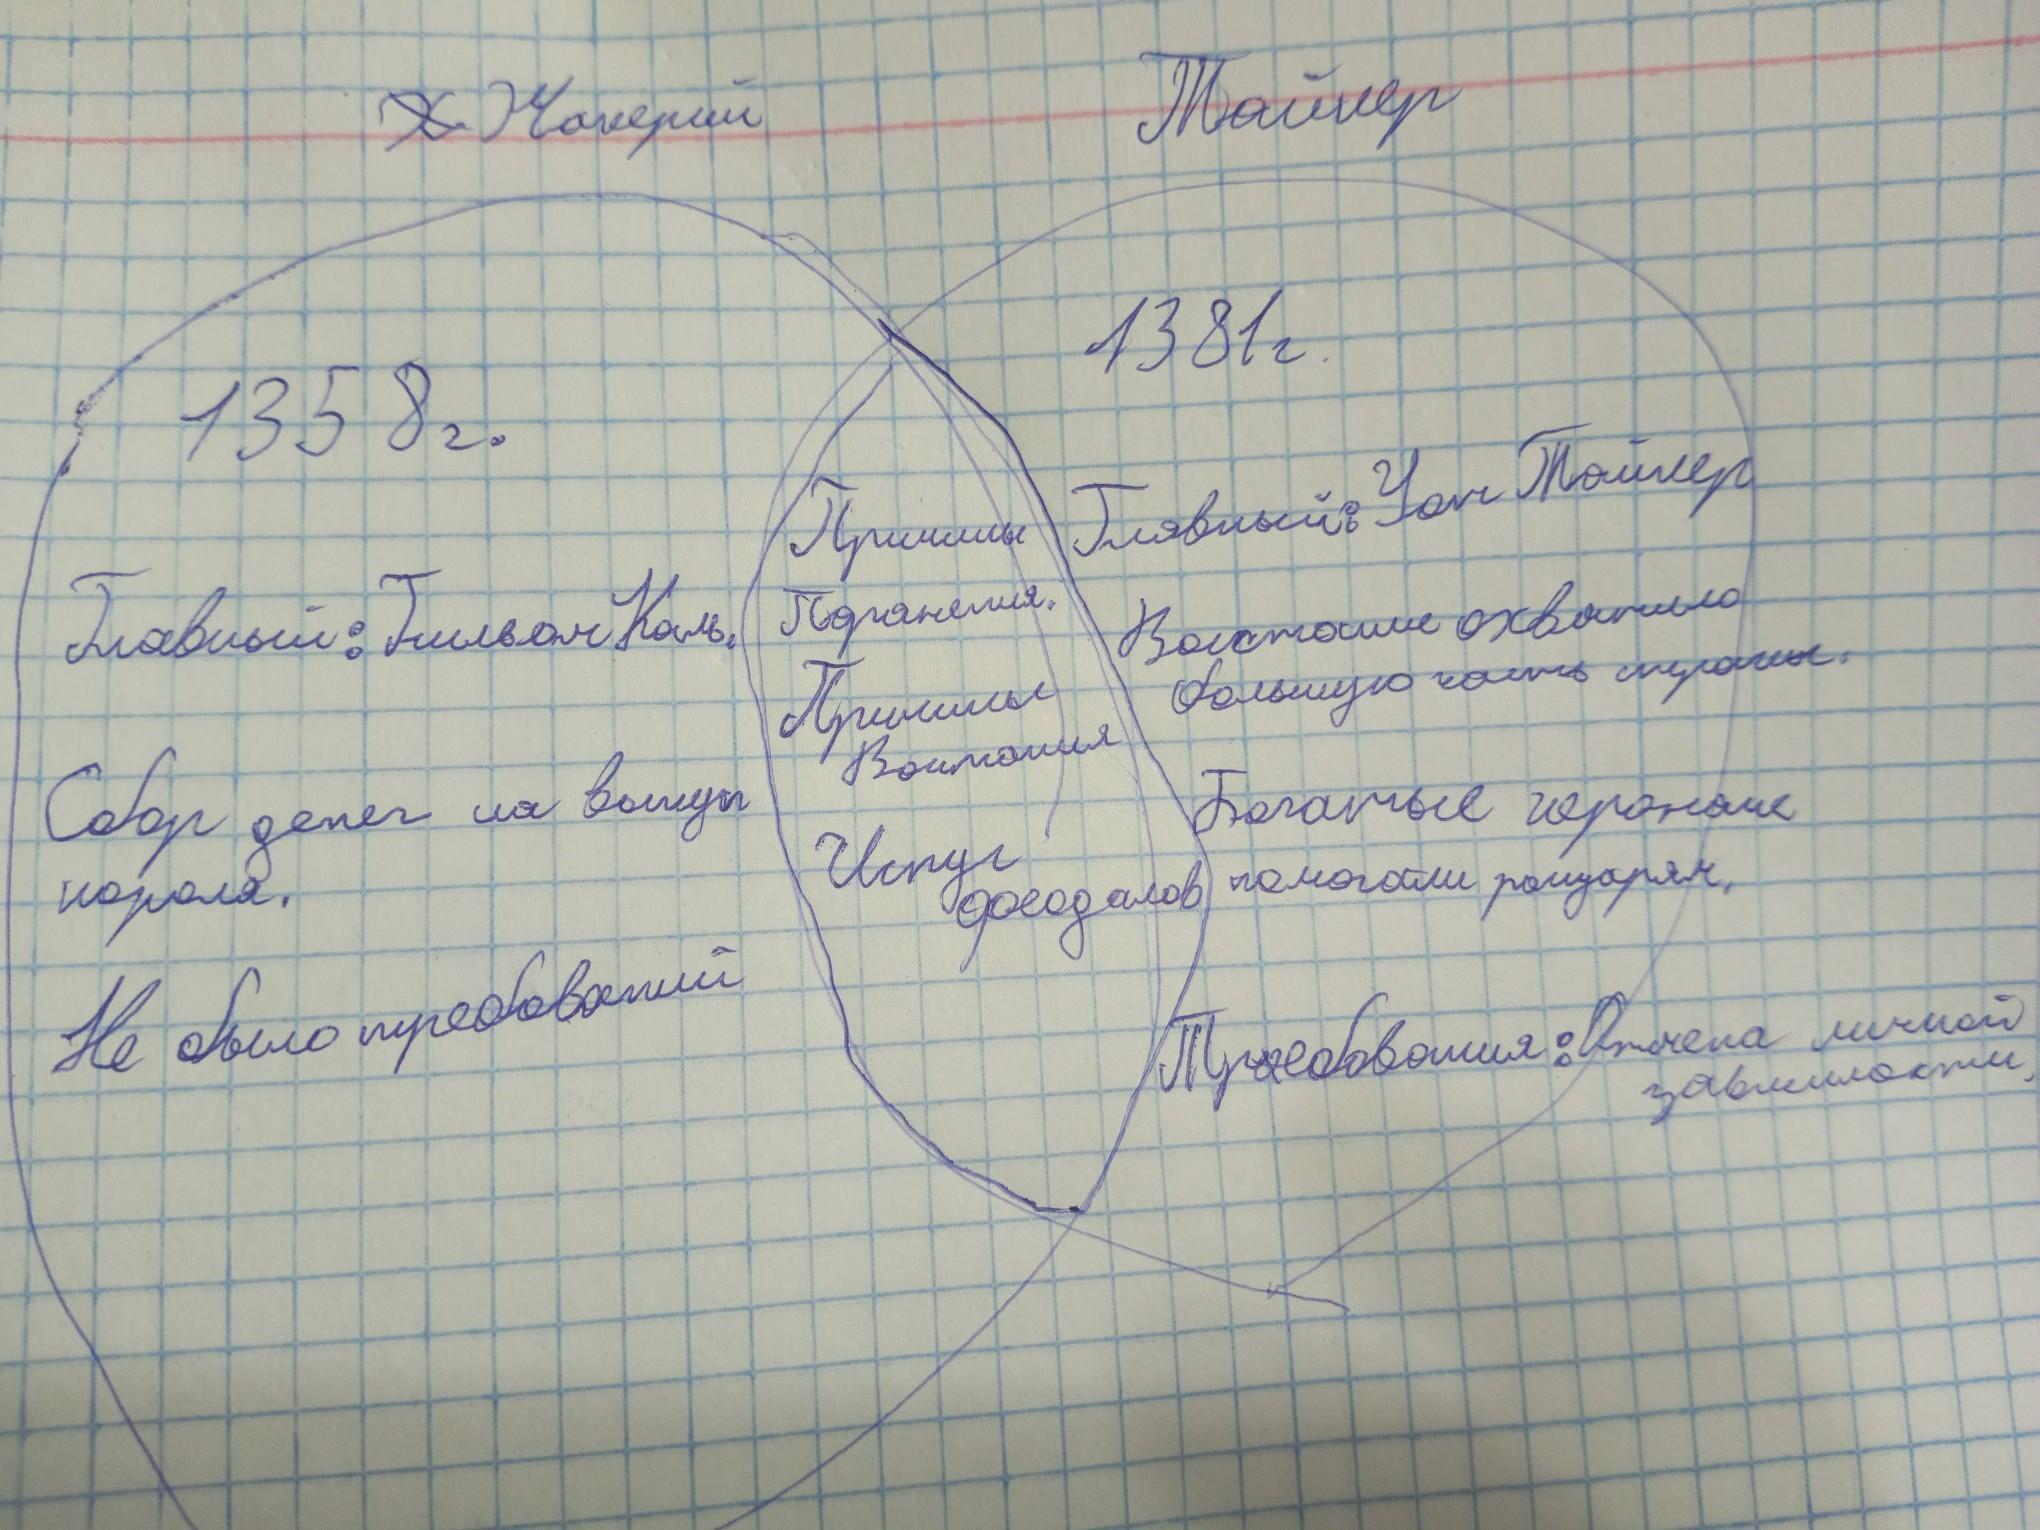 Жакерий
Тайлер
1358г.
1381г.
Главный: Гильом Каль.
Сбор денег на выкуп
короля.
Не было требований
Причины
Поражения.
Причины
Восстания
Испуг
феодалов
Глявный: Уот Тайлер
Восстание охватило
большую часть страны.
Богатые горожане
помогали рыцарям.
Требования: Отмена личной
зависимости.